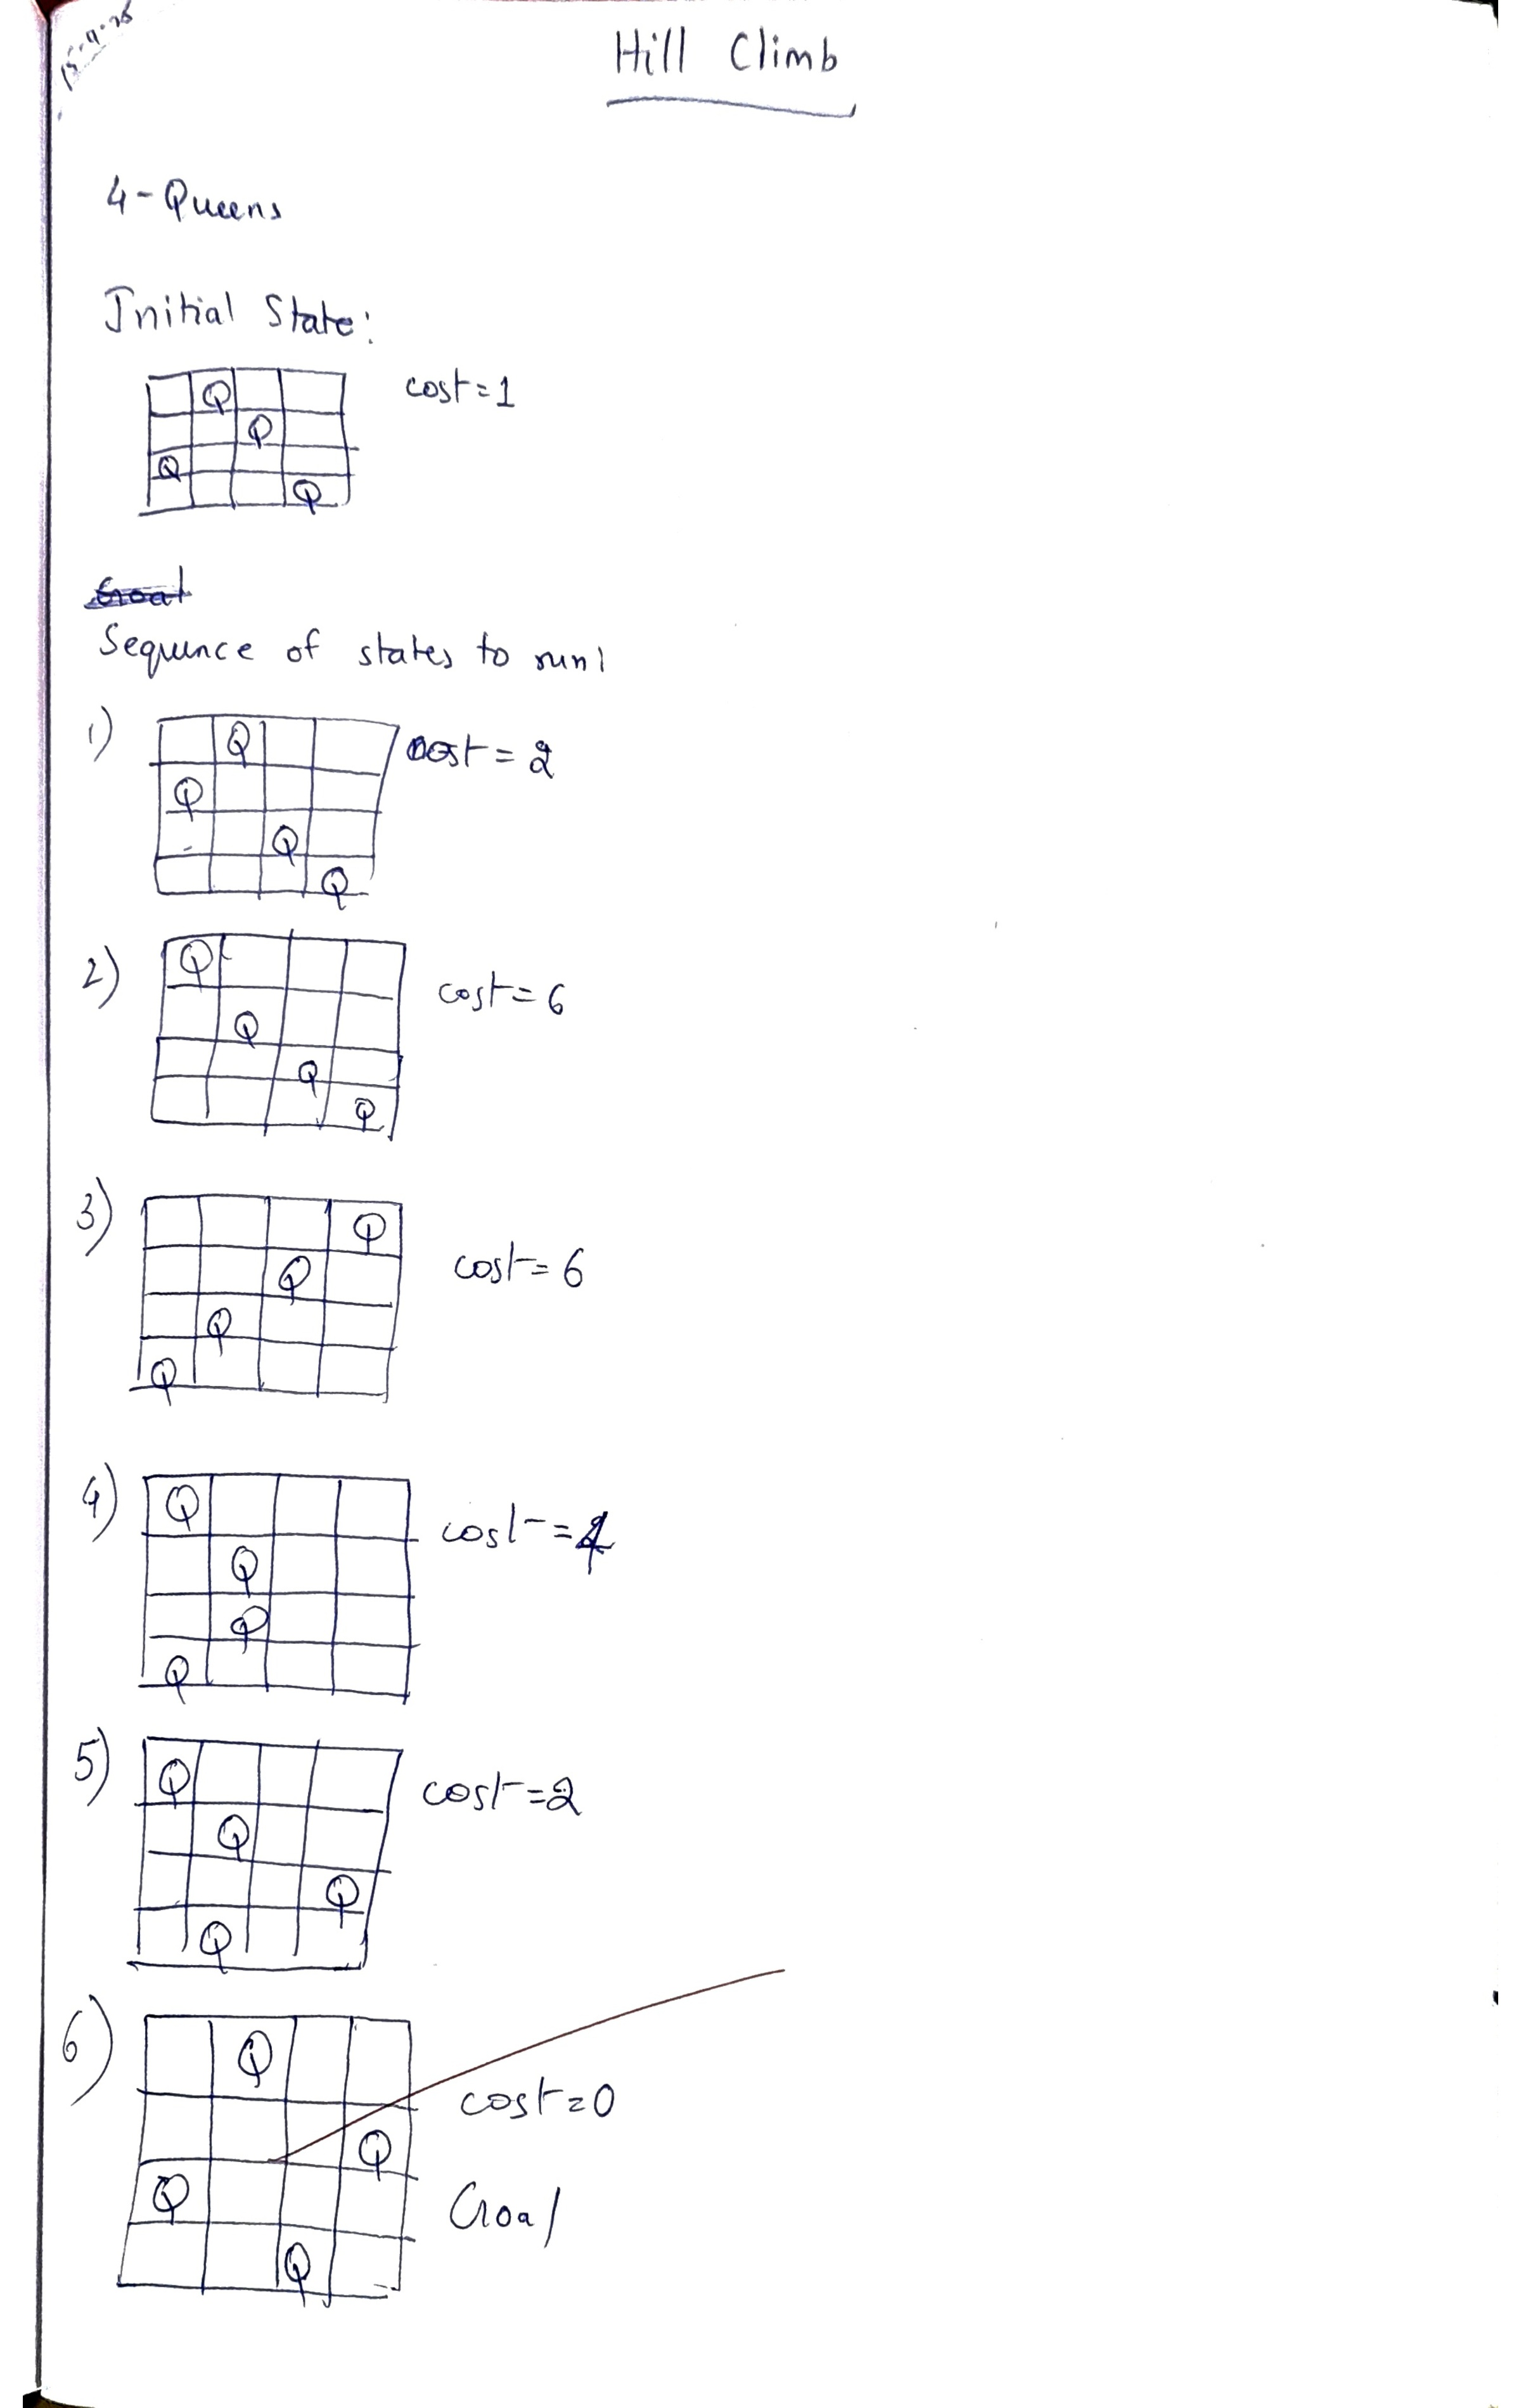 15-9-25
Hill Climb
4-Queens
Initial State:
Q
cost=1
Q
Q
Q
Goal
Sequence of states to run:
1)
Q
cost = 2
Q
Q
Q
2)
Q
cost=6
Q
Q
Q
3)
Q
cost=6
Q
Q
Q
4)
Q
cost=4
Q
Q
Q
5)
Q
cost=2
Q
Q
Q
6)
Q
cost=0
Q
Q
Goal
Q